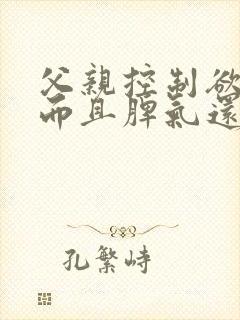 父親控制欲
而且脾氣還
孔繁峙